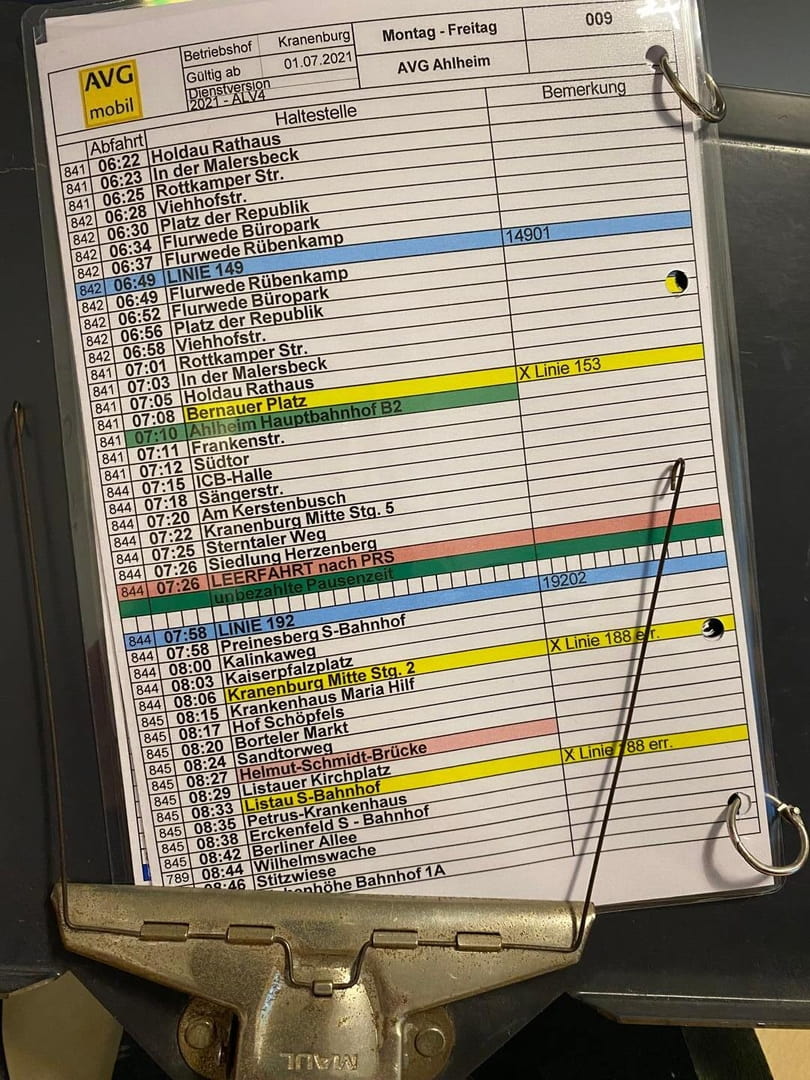 AVG
mobil
Betriebshof Kranenburg
Gültig ab 01.07.2021
Dienstversion
2021 - ALV4
Montag - Freitag
AVG Ahlheim
009
Abfahrt Haltestelle Bemerkung
841 06:22 Holdau Rathaus
841 06:23 In der Malersbeck
841 06:25 Rottkamper Str.
842 06:28 Viehhofstr.
842 06:30 Platz der Republik
842 06:34 Flurwede Büropark
842 06:37 Flurwede Rübenkamp
842 06:49 LINIE 149 14901
842 06:49 Flurwede Rübenkamp
842 06:52 Flurwede Büropark
842 06:56 Platz der Republik
842 06:58 Viehhofstr.
841 07:01 Rottkamper Str.
841 07:03 In der Malersbeck
841 07:05 Holdau Rathaus
841 07:08 Bernauer Platz X Linie 153
841 07:10 Ahlheim Hauptbahnhof B2
841 07:11 Frankenstr.
841 07:12 Südtor
844 07:15 ICB-Halle
844 07:18 Sängerstr.
844 07:20 Am Kerstenbusch
844 07:22 Kranenburg Mitte Stg. 5
844 07:25 Sterntaler Weg
844 07:26 Siedlung Herzenberg
844 07:26 LEERFAHRT nach PRS
unbezahlte Pausenzeit
844 07:58 LINIE 192 19202
844 07:58 Preinesberg S-Bahnhof
844 08:00 Kalinkaweg
844 08:03 Kaiserpfalzplatz
844 08:06 Kranenburg Mitte Stg. 2 X Linie 188 err.
845 08:15 Krankenhaus Maria Hilf
845 08:17 Hof Schöpfels
845 08:20 Borteler Markt
845 08:24 Sandtorweg
845 08:27 Helmut-Schmidt-Brücke
845 08:29 Listauer Kirchplatz
845 08:33 Listau S-Bahnhof X Linie 188 err.
845 08:35 Petrus-Krankenhaus
845 08:38 Erckenfeld S - Bahnhof
845 08:42 Berliner Allee
789 08:44 Wilhelmswache
08:46 Stitzwiese
Bahnhof 1A
MAUL